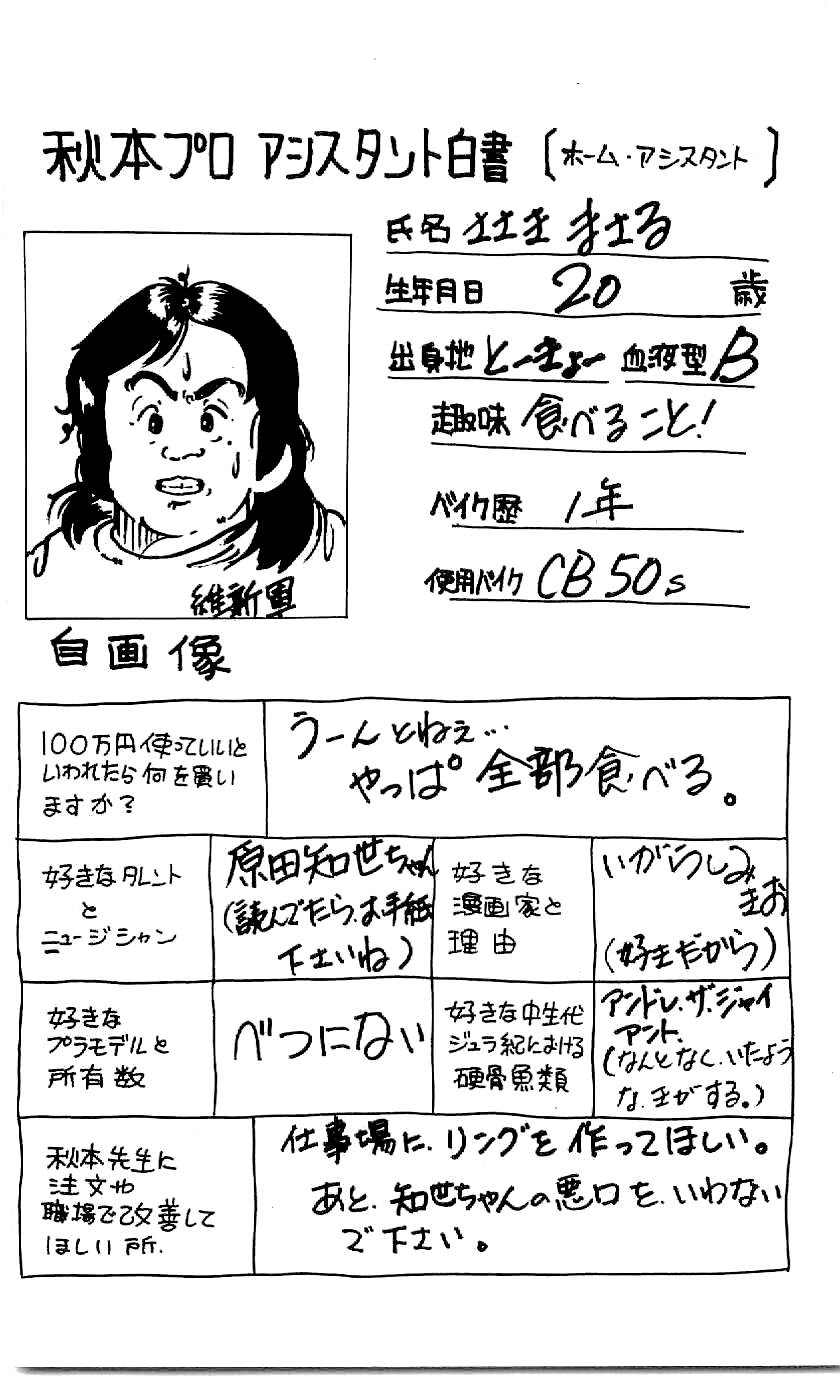 秋本プロ アシスタント白書 [ホーム・アシスタント]
氏名 ささき まさる
生年月日 20 歳
出身地 とーきょー 血液型 B
趣味 食べること!
バイク歴 1年
使用バイク CB50s
維新軍
自画像
100万円使っていいと
いわれたら何を買い
ますか?
うーんとねぇ…
やっぱ全部食べる。
好きなタレント
と
ニュージシャン
原田知世ちゃん
(読んでたら、お手紙
下さいね)
好きな
漫画家と
理由
いがらしみ
きお
(好きだから)
好きな
プラモデルと
所有数
べつにない
好きな中生代
ジュラ紀における
硬骨魚類
アンドレ・ザ・ジャイ
アント、
(なんとなく、いたよう
な、きがする。)
秋本先生に
注文や
職場で改善して
ほしい所.
仕事場に、リングを作ってほしい。
あと、知世ちゃんの悪口を、いわない
で下さい。